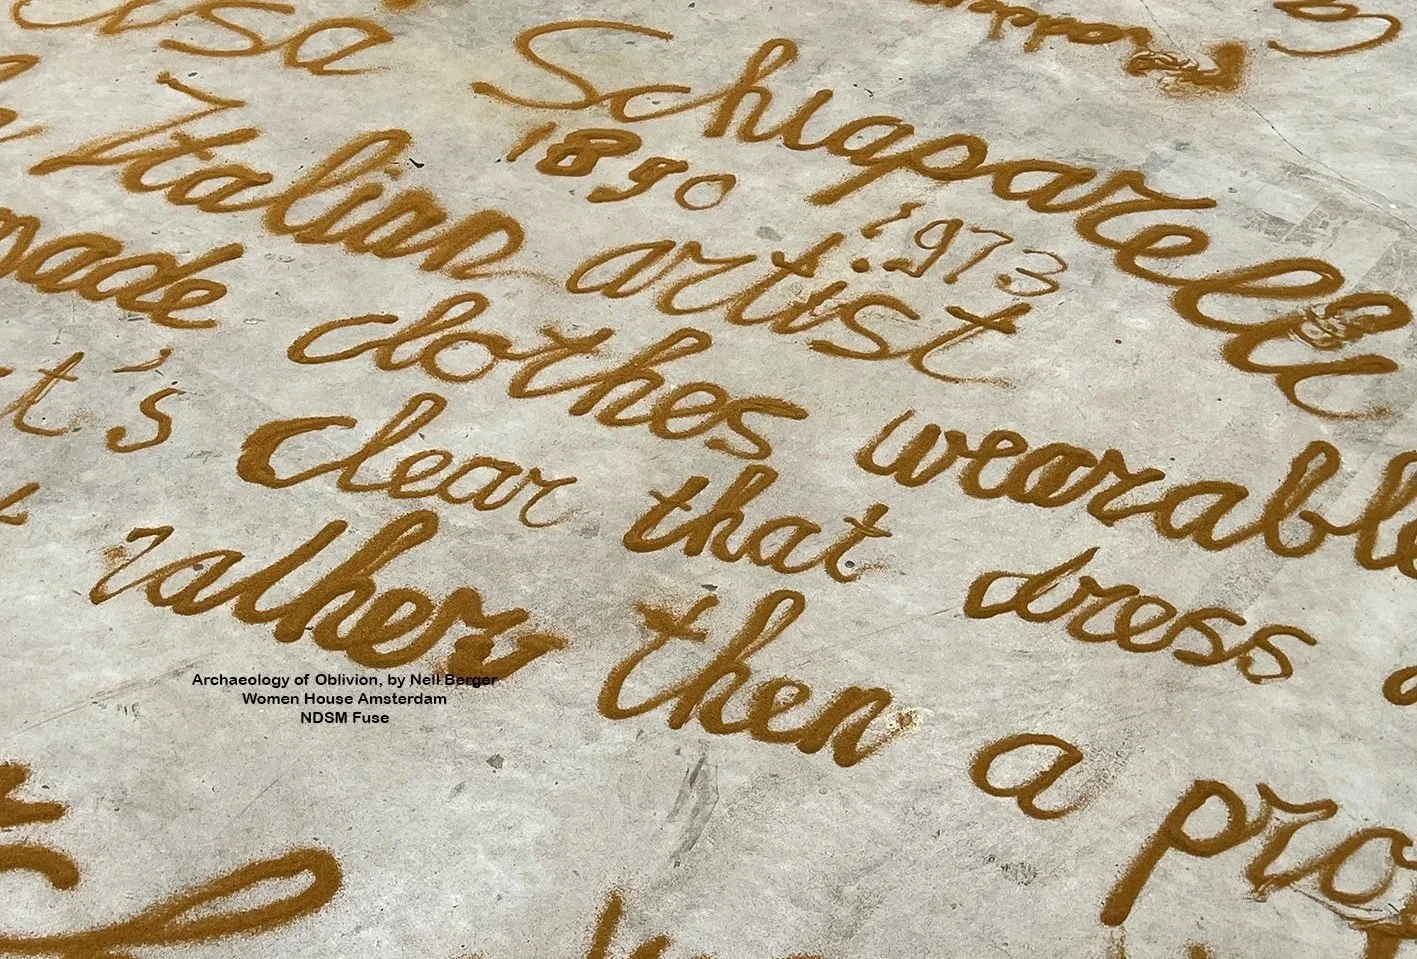 Elsa Schiaparelli
1890 1973
Italian artist
made clothes wearable
it's clear that dress
rather then a pro
Archaeology of Oblivion, by Neil Berger
Women House Amsterdam
NDSM Fuse